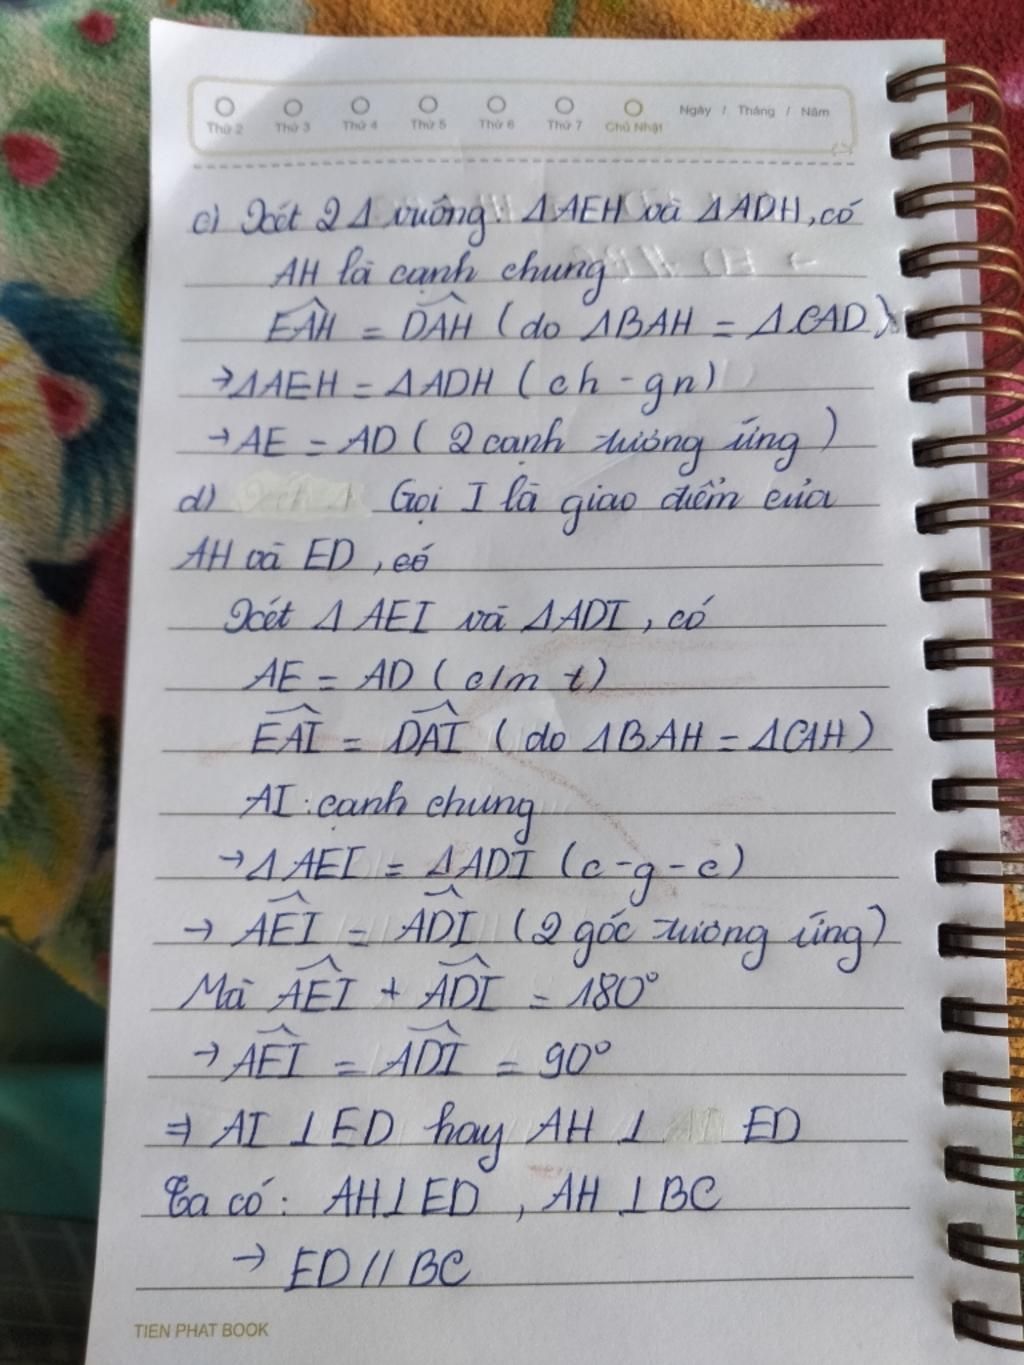 Thứ 2 Thứ 3 Thứ 4 Thứ 5 Thứ 6 Thứ 7 Chủ Nhật Ngày / Tháng / Năm
c) Xét 2 Δ vuông: ΔAEH và ΔADH, có
AH là cạnh chung
\widehat{EAH} = \widehat{DAH} (do ΔBAH = ΔCAD)
→ΔAEH = ΔADH (ch - gn)
→AE = AD (2 cạnh tương ứng)
d) Gọi I là giao điểm của
AH và ED, có
Xét Δ AEI và ΔADI, có
AE = AD (c/m t)
\widehat{EAI} = \widehat{DAI} (do ΔBAH = ΔCAH)
AI: cạnh chung
→ΔAEI = ΔADI (c-g-c)
→ \widehat{AEI} = \widehat{ADI} (2 góc tương ứng)
Mà \widehat{AEI} + \widehat{ADI} = 180°
→ \widehat{AEI} = \widehat{ADI} = 90°
⇒ AI ⊥ ED hay AH ⊥ ED
Ta có: AH⊥ED, AH⊥BC
→ ED // BC
TIEN PHAT BOOK